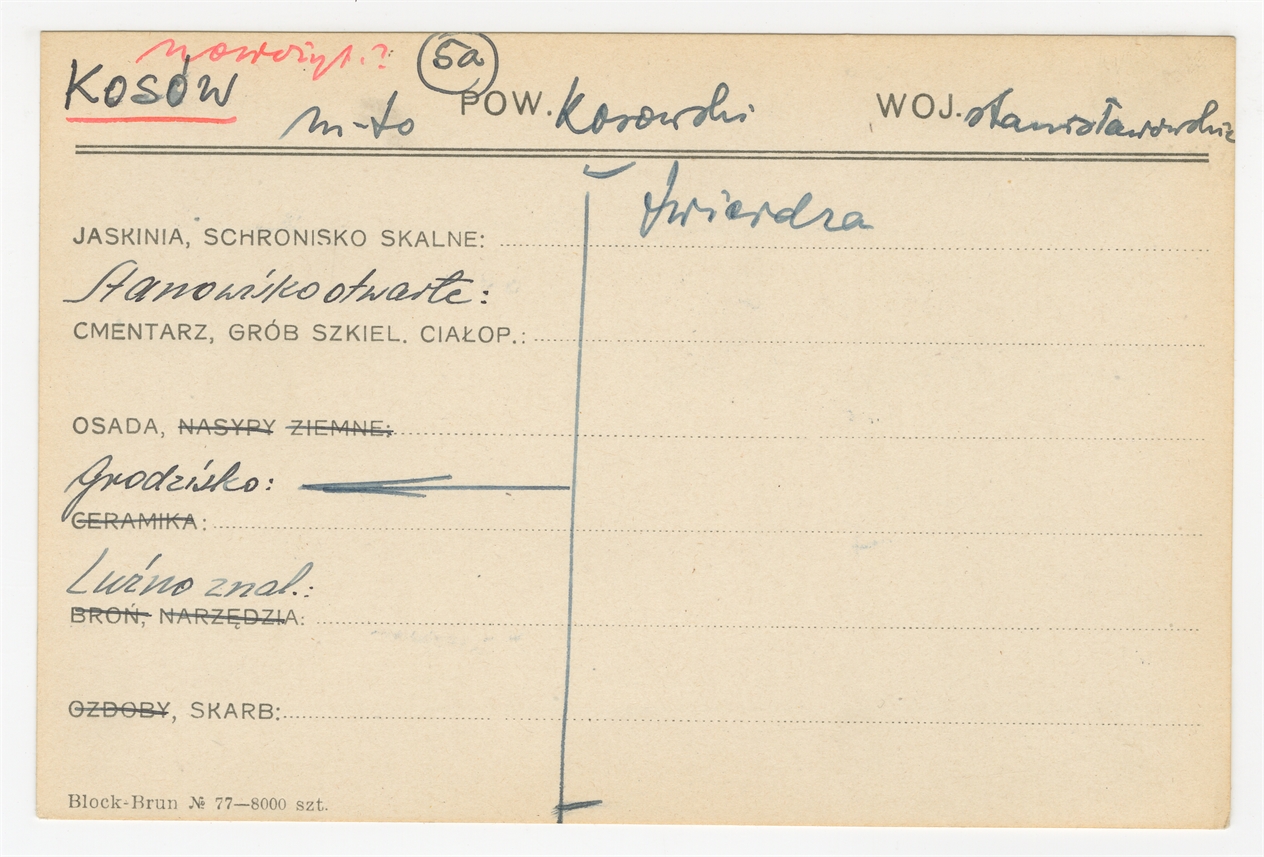 nowożyt.?
KOSÓW m-to 5a POW. Kosowski WOJ. stanisławowskie
Twierdza
JASKINIA, SCHRONISKO SKALNE:
Stanowisko otwarte:
CMENTARZ, GRÓB SZKIEL. CIAŁOP.:
OSADA, NASYPY ZIEMNE:
Grodzisko:
CERAMIKA:
Luźno znal.:
BROŃ, NARZĘDZIA:
OZDOBY, SKARB:
Block-Brun № 77—8000 szt.